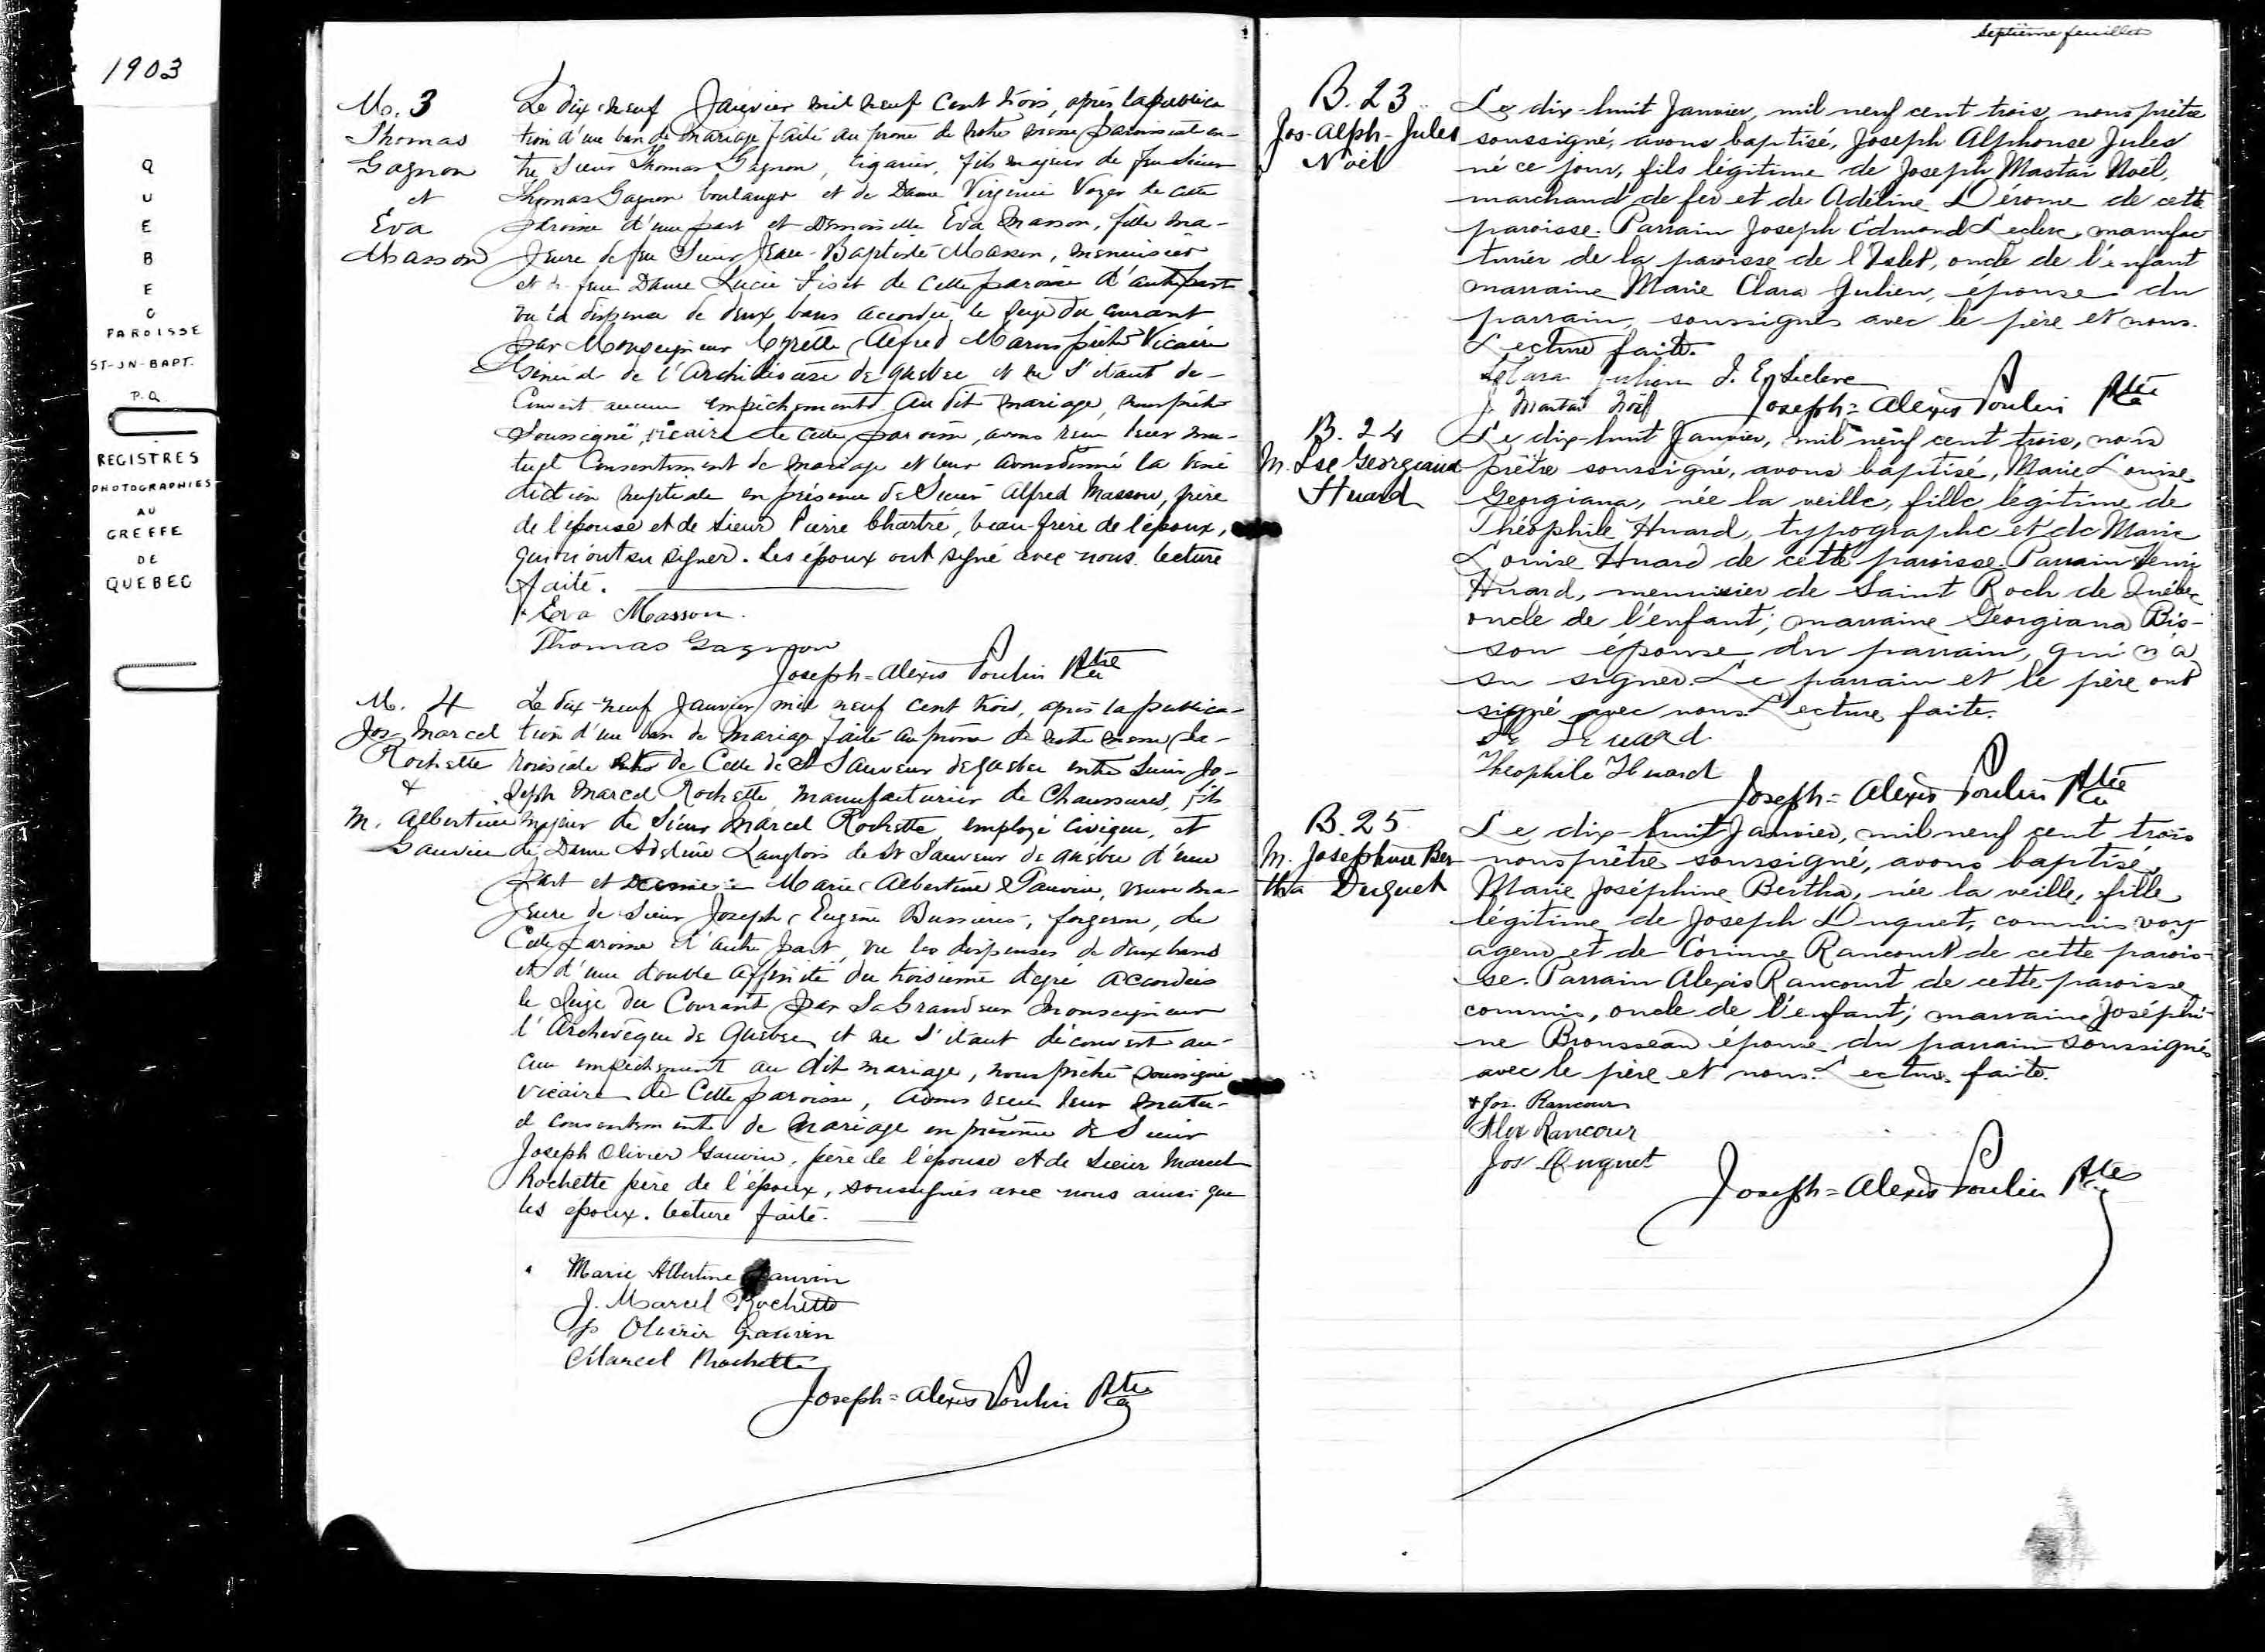 1903
QUEBEC
PAROISSE
ST-JN-BAPT.
P.Q
REGISTRES
PHOTOGRAPHIES
AU
GREFFE
DE
QUEBEC
M. 3
Thomas
Gagnon
et
Eva
Masson
Le dix-neuf Janvier mil neuf cent trois, après la publica
tion d'un ban de mariage faite au prône de notre messe paroissiale en-
tre Sieur Thomas Gagnon, cigarier, fils majeur de feu Sieur
Thomas Gagnon boulanger et de Dame Virginie Voyer de cette
paroisse d'une part et Demoiselle Eva Masson, fille ma-
jeure de feu Sieur Jean-Baptiste Masson, menuisier
et de feue Dame Lucie Fiset de cette paroisse d'autre part
vu la dispense de deux bans accordée le seize du courant
par Monseigneur Cyrille Alfred Marois prêtre Vicaire
Général de l'Archidiocèse de Québec et ne s'étant dé-
couvert aucun empêchement au dit mariage, nous prêtre
soussigné, vicaire de cette paroisse, avons reçu leur mu-
tuel consentement de mariage et leur avons donné la béné
diction nuptiale en présence de Sieur Alfred Masson, frère
de l'épouse et de Sieur Pierre Chartré, beau-frère de l'époux,
qui n'ont su signer. Les époux ont signé avec nous. Lecture
faite.
Eva Masson.
Thomas Gagnon
Joseph=Alexis Poulin Ptre
M. 4
Jos Marcel
Rochette
&
M. Albertine
Gauvin
Le dix-neuf Janvier mil neuf cent trois, après la publica-
tion d'un ban de mariage faite au prône de notre messe pa-
roissiale de celle de St Sauveur de Québec entre Sieur Jo-
seph Marcel Rochette, manufacturier de Chaussures, fils
majeur de Sieur Marcel Rochette, employé civique, et
de Dame Adeline Langlois de St Sauveur de Québec d'une
part et Marie Albertine Gauvin, veuve ma-
jeure de Sieur Joseph Eugène Bussières, forgeron, de
cette paroisse d'autre part, vu les dispenses de deux bans
et d'une double affinité du troisième degré accordées
le seize du courant par Sa Grandeur Monseigneur
l'Archevêque de Québec et ne s'étant découvert au-
cun empêchement au dit mariage, nous prêtre soussigné
vicaire de cette paroisse, avons reçu leur mutu-
el consentement de mariage en présence de Sieur
Joseph Olivier Gauvin, père de l'épouse et de Sieur Marcel
Rochette père de l'époux, soussignés avec nous ainsi que
les époux. Lecture faite.
Marie Albertine Gauvin
J. Marcel Rochette
Js Olivier Gauvin
Marcel Rochette
Joseph=Alexis Poulin Ptre
Septième feuillet
B. 23
Jos-Alph-Jules
Noël
Le dix-huit Janvier, mil neuf cent trois, nous prêtre
soussigné, avons baptisé, Joseph Alphonse Jules
né ce jour, fils légitime de Joseph Mastaï Noël,
marchand de fer et de Adéline Dérome de cette
paroisse. Parrain Joseph Edmond Leclerc, manufac
turier de la paroisse de l'Islet, oncle de l'enfant
marraine Marie Clara Julien, épouse du
parrain, soussignés avec le père et nous.
Lecture faite.
Clara Julien J. E. Leclerc
J. Mastaï Noël Joseph=Alexis Poulin Ptre
B. 24
M. Lse Georgiana
Huard
Le dix-huit Janvier, mil neuf cent trois, nous
prêtre soussigné, avons baptisé, Marie Louise
Georgiana, née la veille, fille légitime de
Théophile Huard, typographe et de Marie
Louise Huard de cette paroisse. Parrain Henri
Huard, menuisier de Saint Roch de Québec
oncle de l'enfant; marraine Georgiana Bis-
son épouse du parrain, qui n'a
su signer. Le parrain et le père ont
signé avec nous. Lecture faite.
Huard
Theophile Huard
Joseph=Alexis Poulin Ptre
B. 25
M. Josephine Ber
tha Duquet
Le dix-huit Janvier, mil neuf cent trois
nous prêtre soussigné, avons baptisé,
Marie Joséphine Bertha, née la veille, fille
légitime de Joseph Duquet, commis voy
ageur et de Corinne Rancourt de cette parois-
se. Parrain Alexis Rancourt de cette paroisse
commis, oncle de l'enfant; marraine Joséphi-
ne Brousseau épouse du parrain soussignés
avec le père et nous. Lecture faite.
Jos. Rancour
Alex Rancour
Jos Duquet
Joseph=Alexis Poulin Ptre